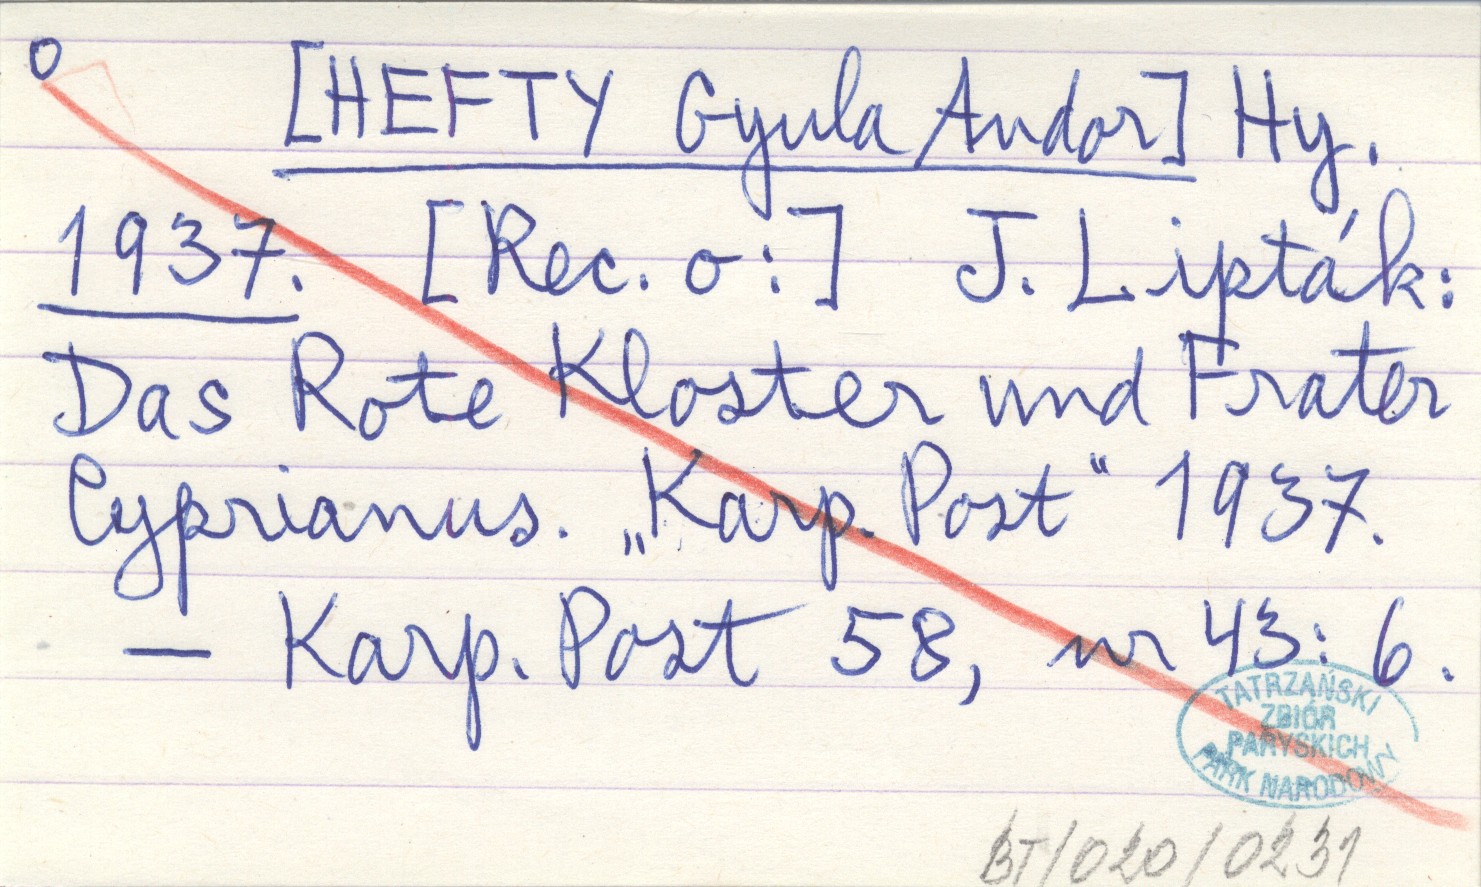 o
[HEFTY Gyula Andor] Hy.
1937. [Rec. o:] J. Lipták:
Das Rote Kloster und Frater
Cyprianus. „Karp. Post“ 1937.
— Karp. Post 58, nr 43: 6.
TATRZAŃSKI
ZBIÓR
PARYSKICH
PARK NARODOWY
BT/020/0231